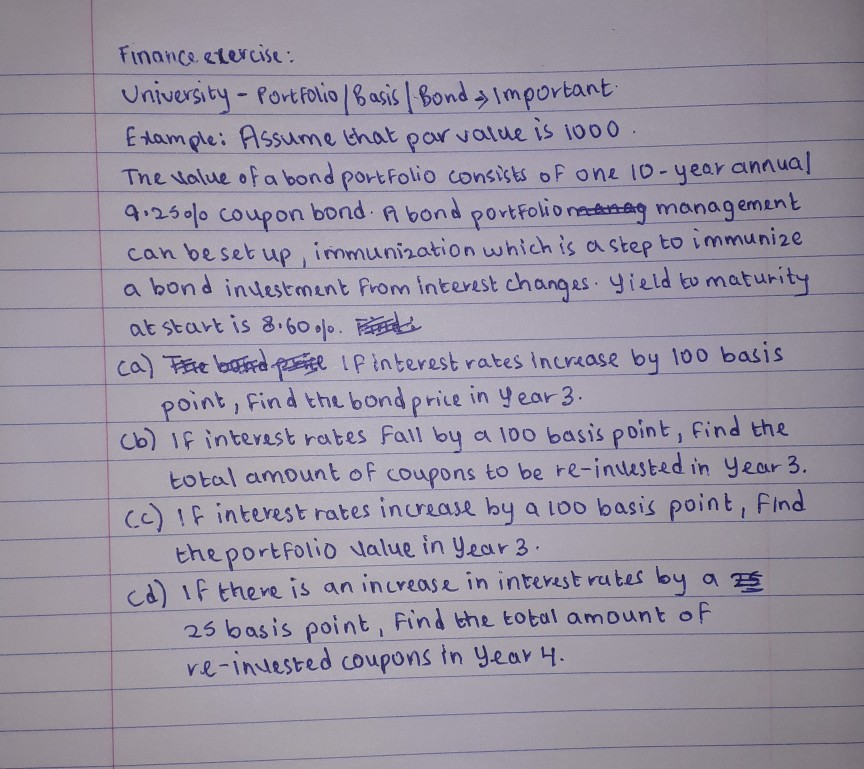 Finance exercise:
University - Portfolio | Basis | Bond → Important.
Example: Assume that par value is 1000.
The value of a bond portfolio consists of one 10-year annual
9.25% coupon bond. A bond portfolio management
can be set up, immunization which is a step to immunize
a bond investment from interest changes. Yield to maturity
at start is 8.60%.
(a) If interest rates increase by 100 basis
point, Find the bond price in year 3.
(b) If interest rates fall by a 100 basis point, find the
total amount of coupons to be re-invested in year 3.
(c) If interest rates increase by a 100 basis point, Find
the portfolio value in Year 3.
(d) If there is an increase in interest rates by a
25 basis point, Find the total amount of
re-invested coupons in Year 4.